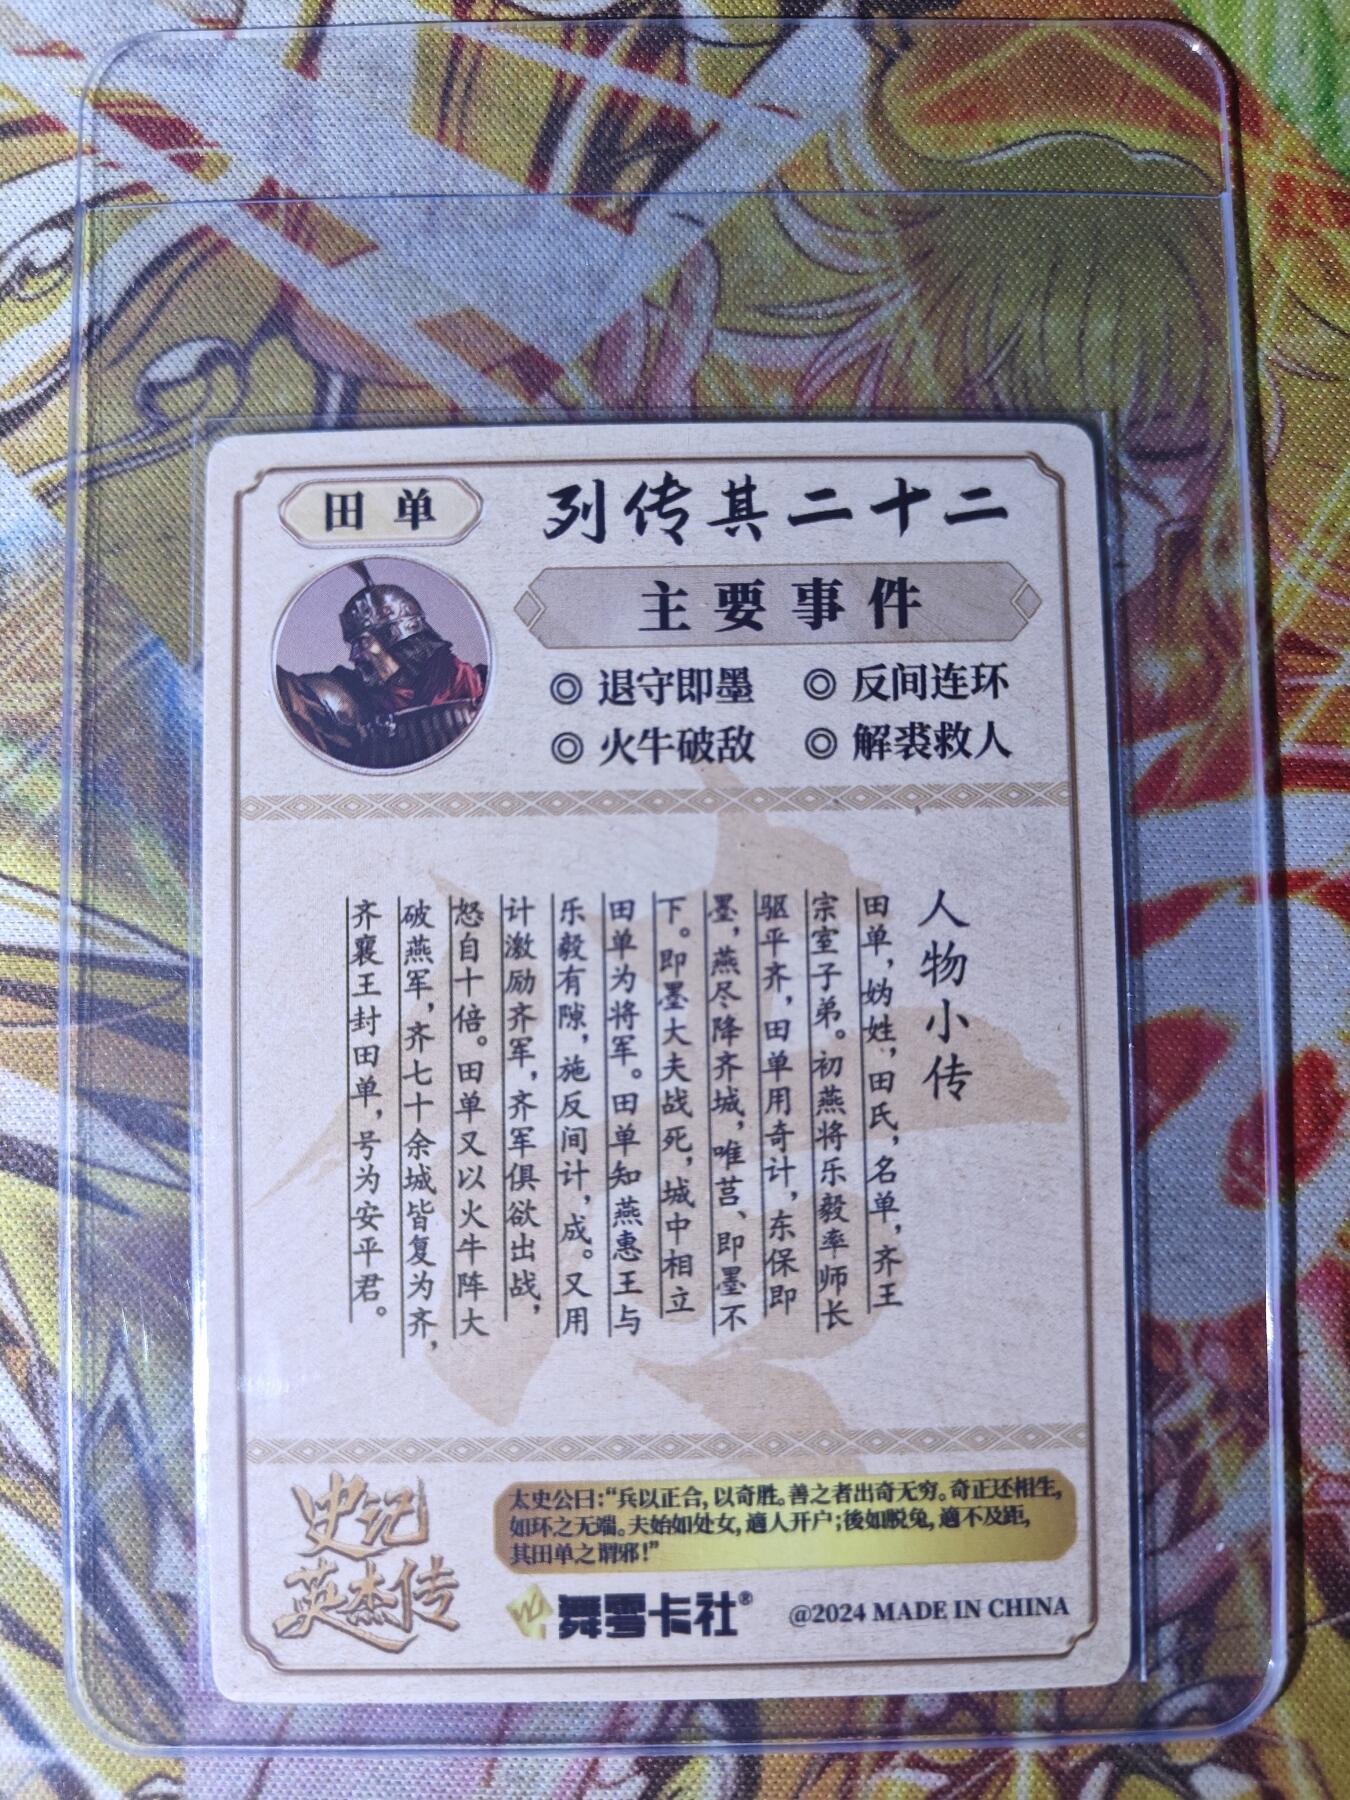 田单
列传其二十二
主要事件
◎ 退守即墨 ◎ 反间连环
◎ 火牛破敌 ◎ 解裘救人
人物小传
田单，妫姓，田氏，名单，齐王
宗室子弟。初燕将乐毅率师长
驱平齐，田单用奇计，东保即
墨，燕尽降齐城，唯莒、即墨不
下。即墨大夫战死，城中相立
田单为将军。田单知燕惠王与
乐毅有隙，施反间计，成。又用
计激励齐军，齐军俱欲出战，
怒自十倍。田单又以火牛阵大
破燕军，齐七十余城皆复为齐，
齐襄王封田单，号为安平君。
史记
英杰传
太史公曰：“兵以正合，以奇胜。善之者出奇无穷。奇正还相生，
如环之无端。夫始如处女，適人开户；後如脱兔，適不及距，
其田单之谓邪！”
舞雩卡社®
@2024 MADE IN CHINA